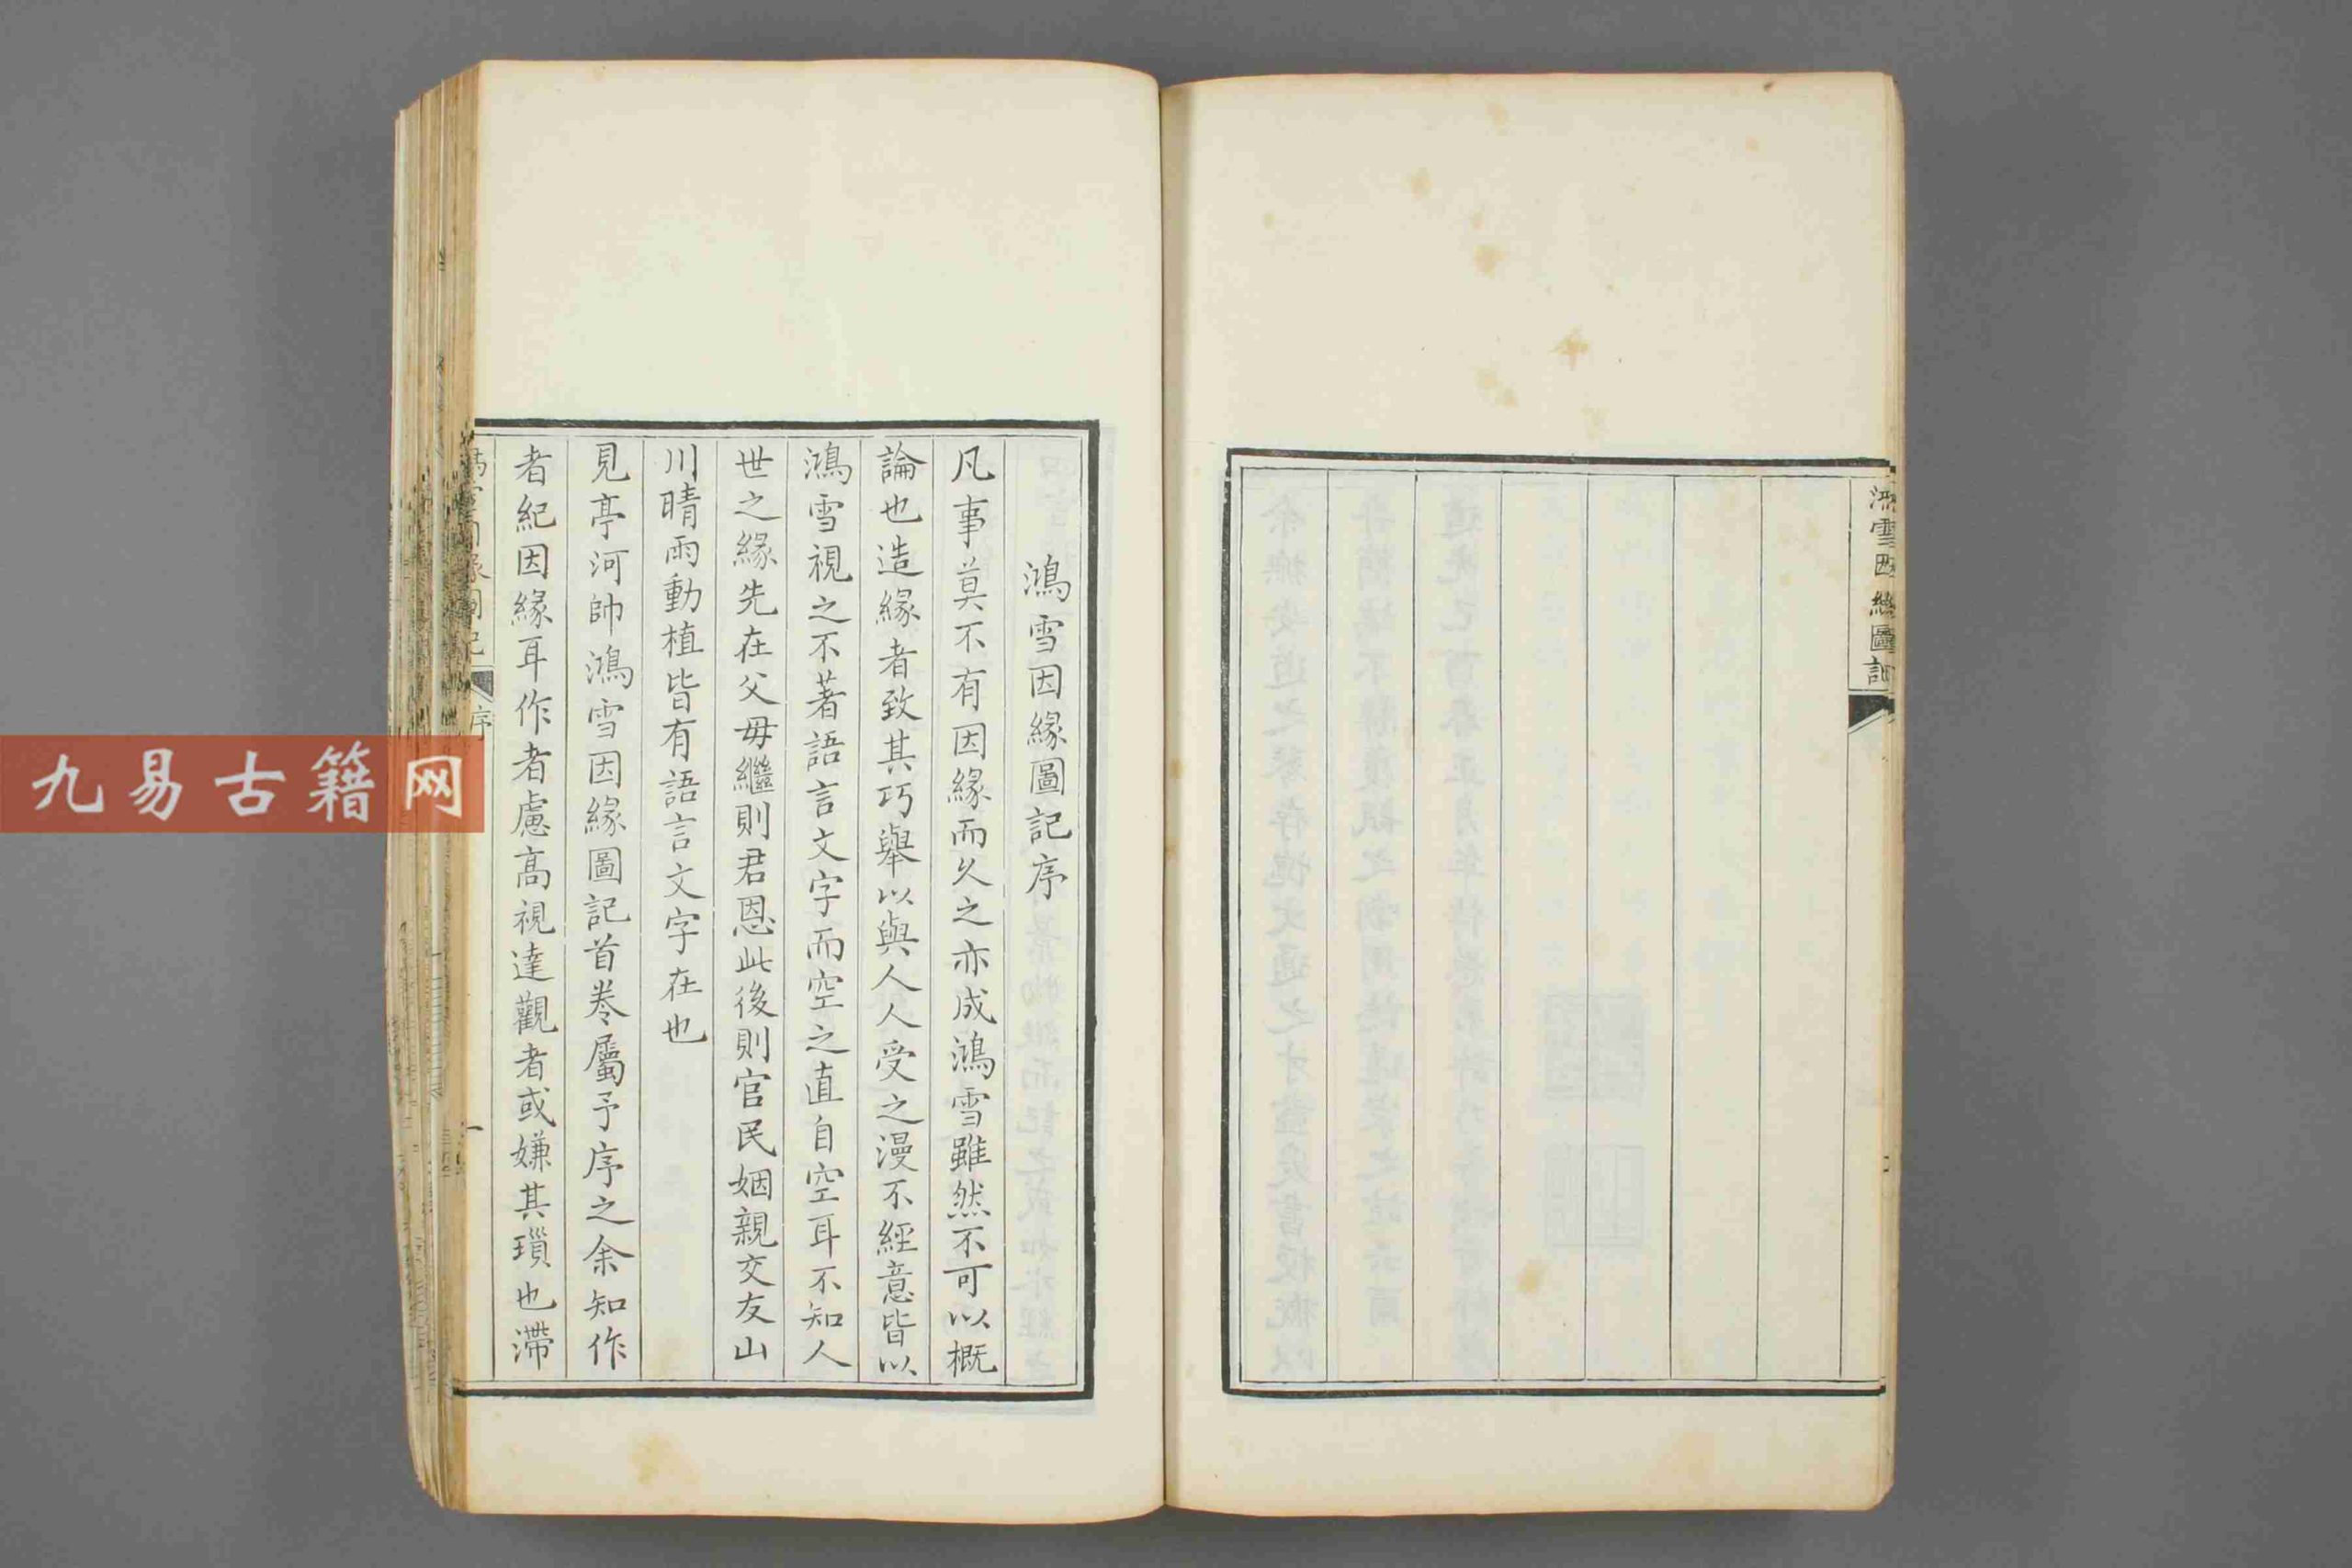 鴻雪因緣圖記
鴻雪因緣圖記序
凡事莫不有因緣而久之亦成鴻雪雖然不可以概
論也造緣者致其巧舉以與人人受之漫不經意皆以
鴻雪視之不著語言文字而空之直自空耳不知人
世之緣先在父母繼則君恩此後則官民姻親交友山
川晴雨動植皆有語言文字在也
見亭河帥鴻雪因緣圖記首卷屬予序之余知作
者紀因緣耳作者慮高視達觀者或嫌其瑣也滯
序
一
九易古籍网